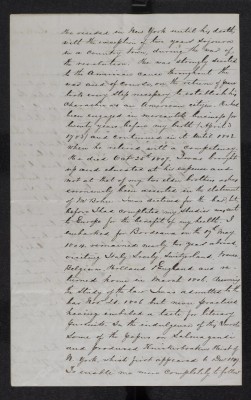 He resided in New York until his death
with the exception of two years sojourn
in a country town during the war of
the revolution. He was strongly devoted
to the American cause throughout the
war and of course, on the return of peace
took every step necessary to establish his
character as an American citizen. He had
been engaged in mercantile business for
twenty years before my birth (April 3
1783) and continued in it until 1802
when he retired with a competency.
He died Oct 25th 1807. I was brought
up and educated at his expense and
not at that of my two elder brothers as has
erroneously been asserted in the statement
of Mr Bohn. I was destined for the bar, but
before I had completed my studies was sent
to Europe for the benefit of my health. I
embarked for Bordeaux on the 19th May
1804. remained nearly two years abroad,
visiting Italy, Sicily, Switzerland, France
Belgium, Holland & England and re-
turned home in March 1806. Resuming
the study of the law I was admitted to the
bar Nov 21. 1806 but never practised
having imbibed a taste for literary
pursuits. In the indulgence of this I wrote
some of the papers in Salmagundi
and produced Knickerbockers Hist. of
N. York which first appeared in Dec 1809.
To enable me more completely to follow